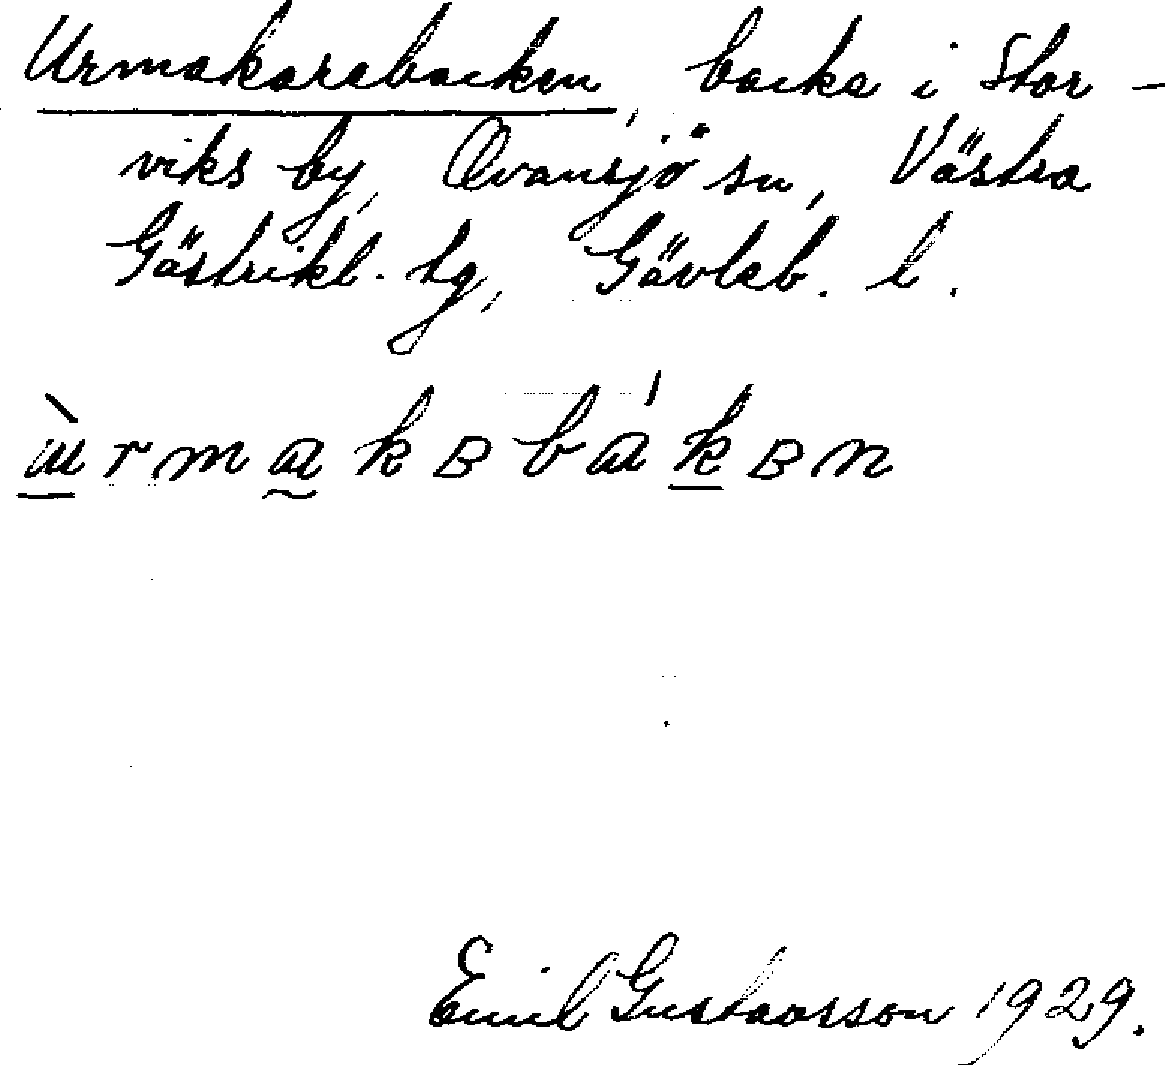 Urmakarebacken, backe i Stor-
viks by, Ovansjö sn, Västra
Gästrikl. tg, Gävleb. l.
Emil Gustavsson 1929.